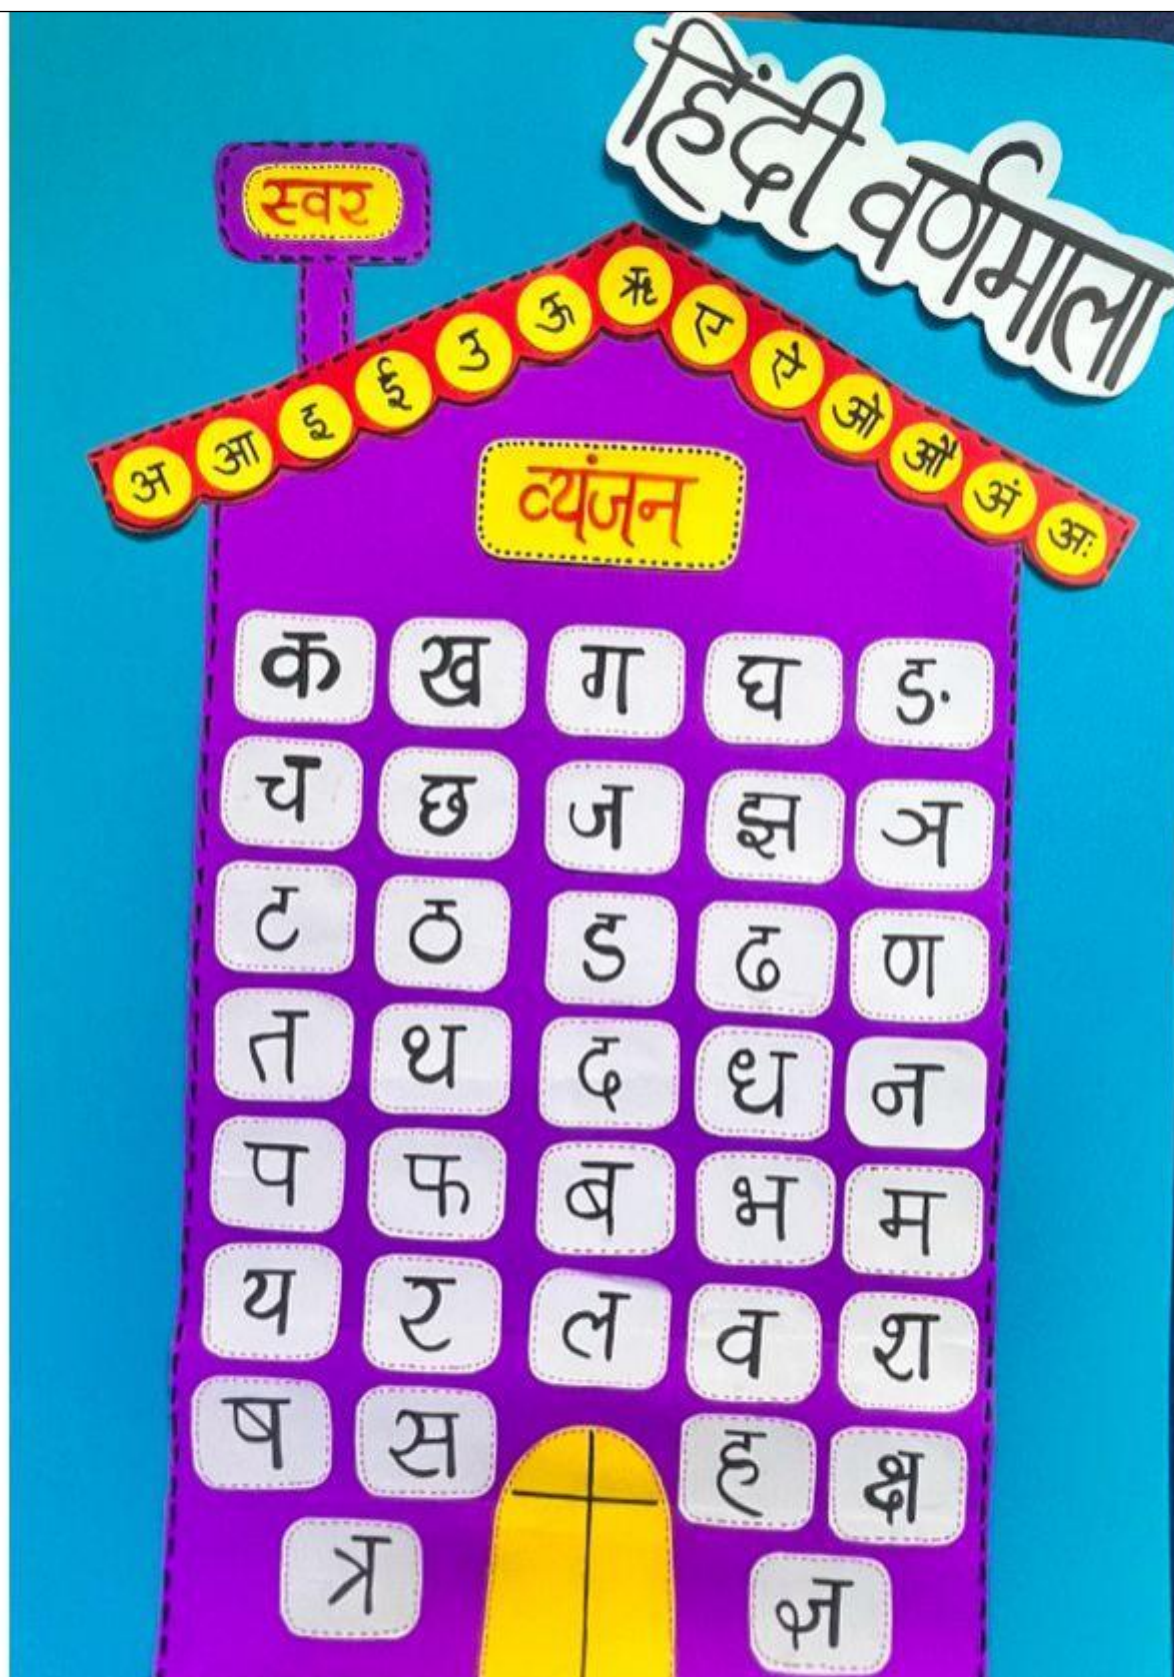 हिंदी वर्णमाला
स्वर
अ आ इ ई उ ऊ ऋ ए ऐ ओ औ अं अः
व्यंजन
क ख ग घ ङ
च छ ज झ ञ
ट ठ ड ढ ण
त थ द ध न
प फ ब भ म
य र ल व श
ष स ह क्ष
त्र ज्ञ